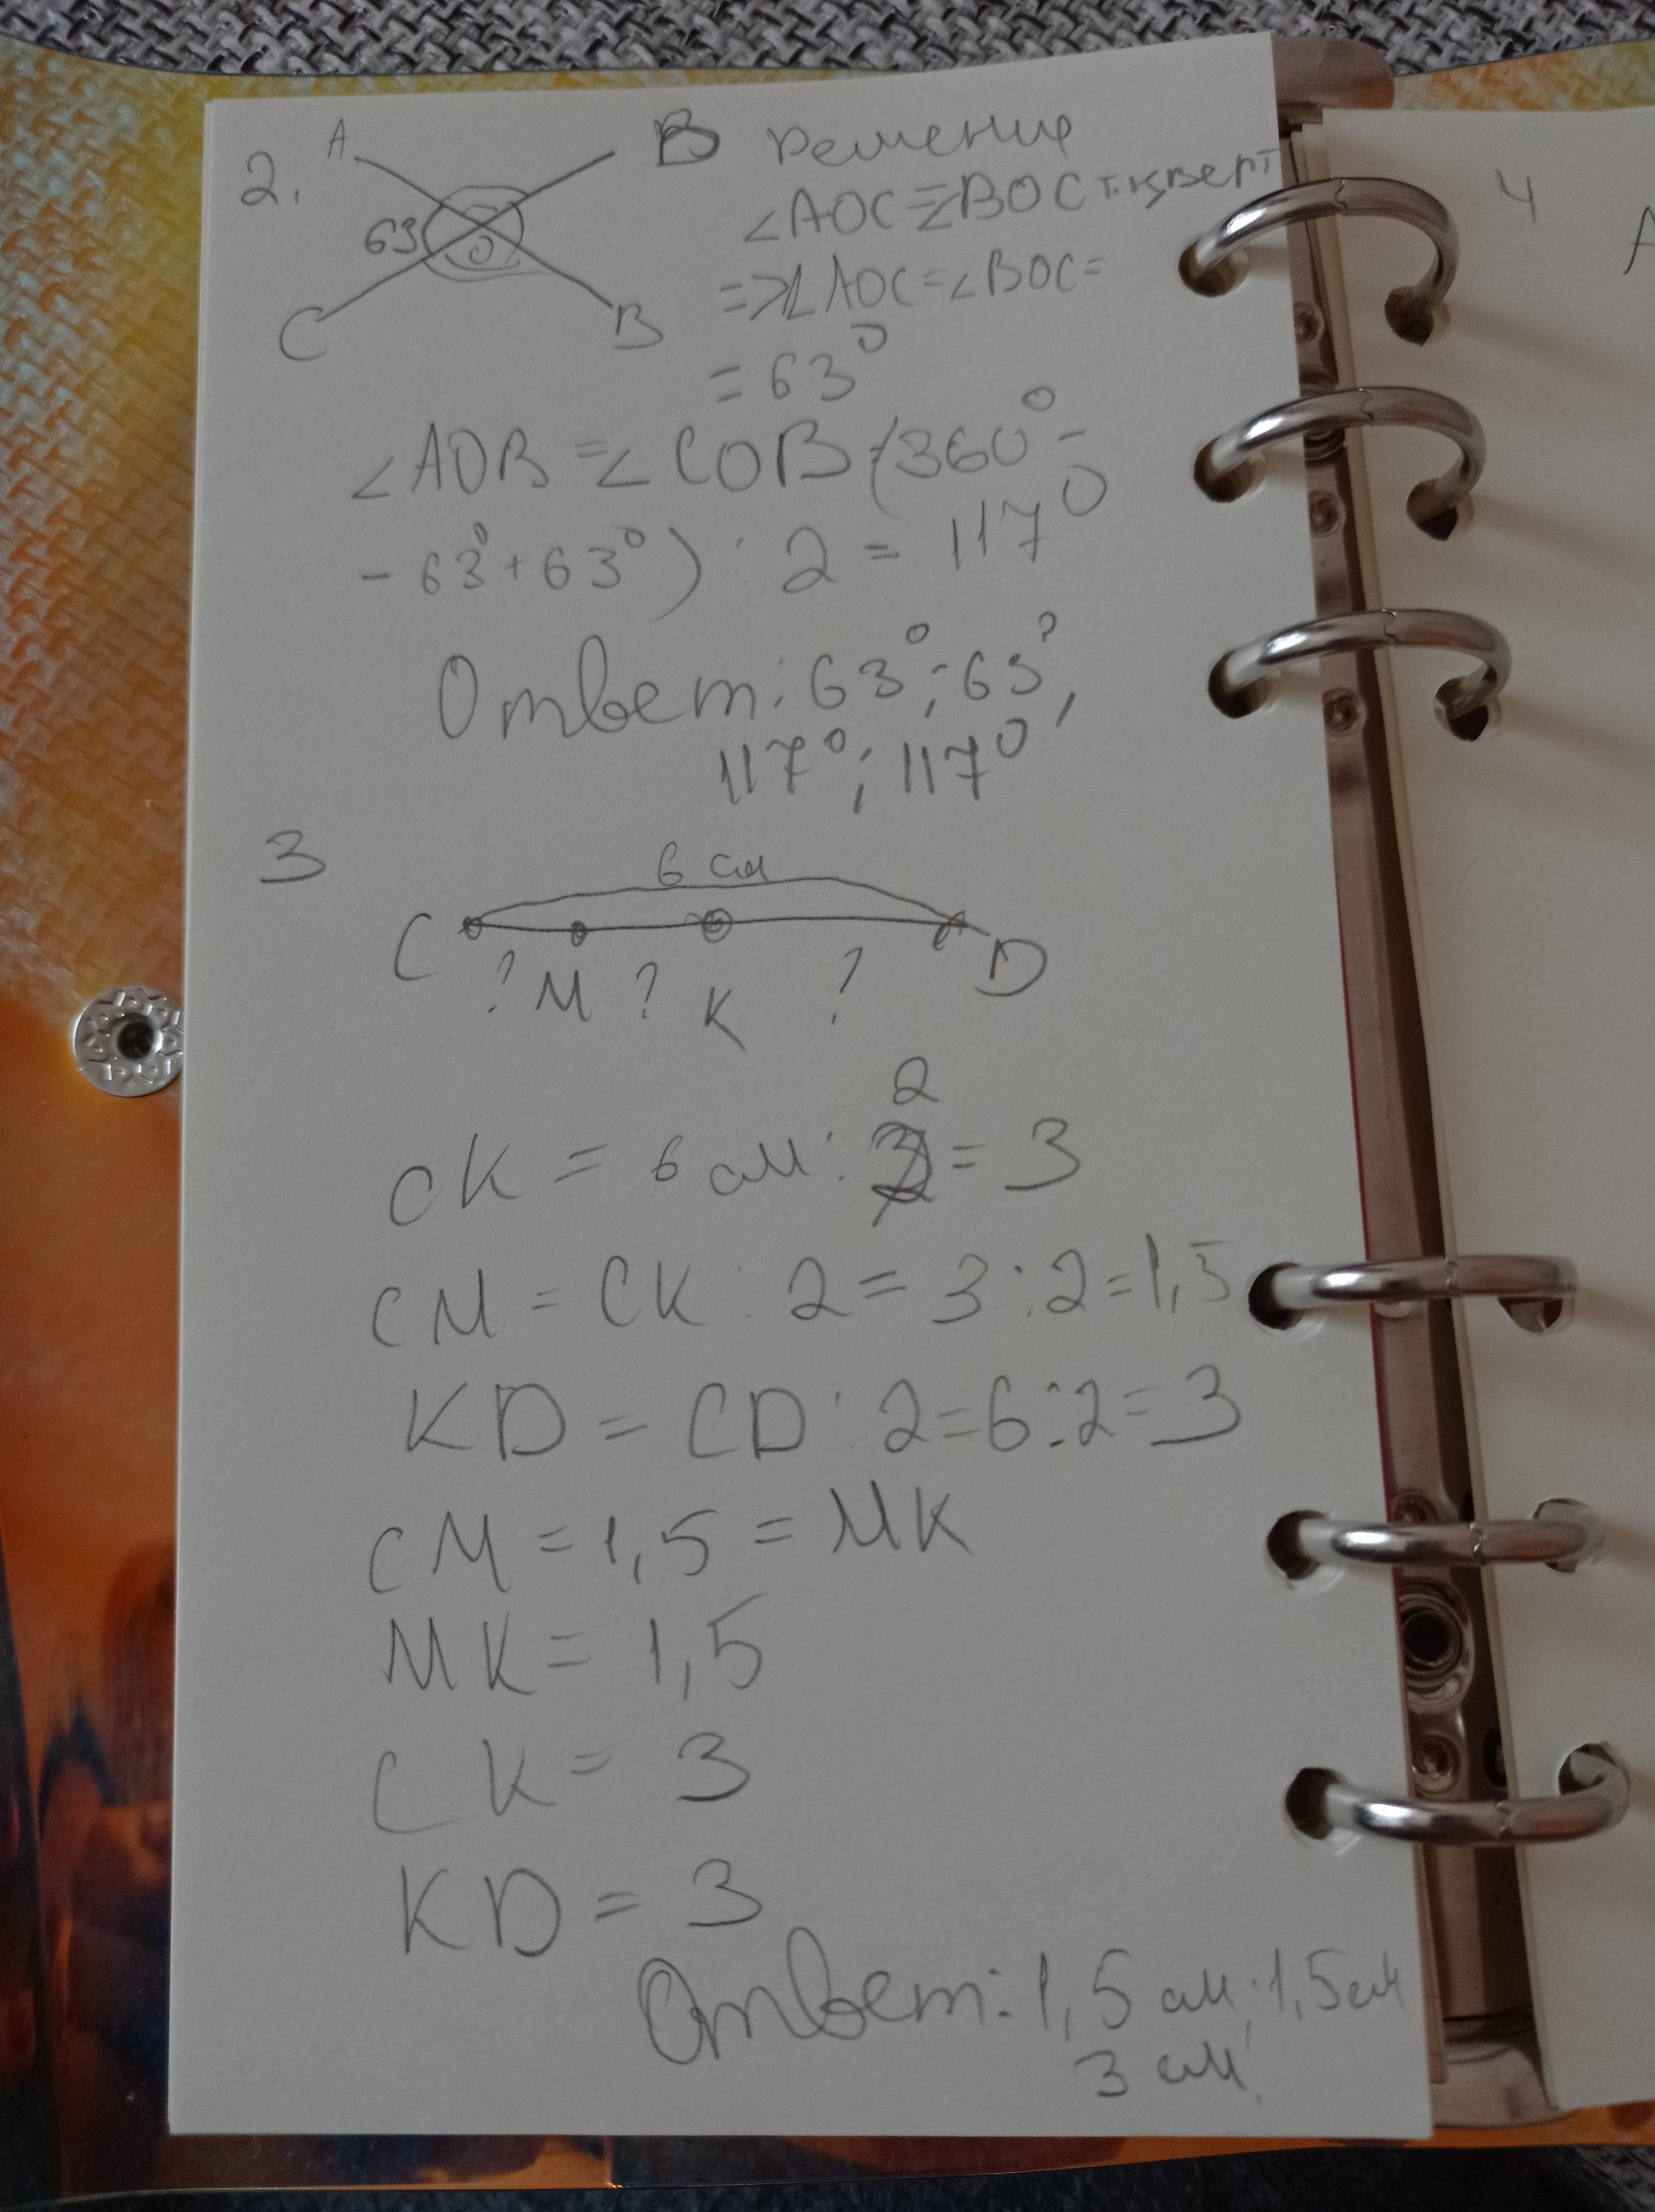 2.
A
B
63
O
C
B
Решение
∠AOC = ∠BOC т.к верт
=> ∠AOC = ∠BOC =
= 63°
∠AOB = ∠COB = (360° -
- 63° + 63°) : 2 = 117°
Ответ: 63°; 63°,
117°; 117°
3
6 см
C ? M ? K ? D
2
CK = 6 см : = 3
CM = CK : 2 = 3 : 2 = 1,5
KD = CD : 2 = 6 : 2 = 3
CM = 1,5 = MK
MK = 1,5
CK = 3
KD = 3
Ответ: 1,5 см; 1,5 см
3 см
4
A